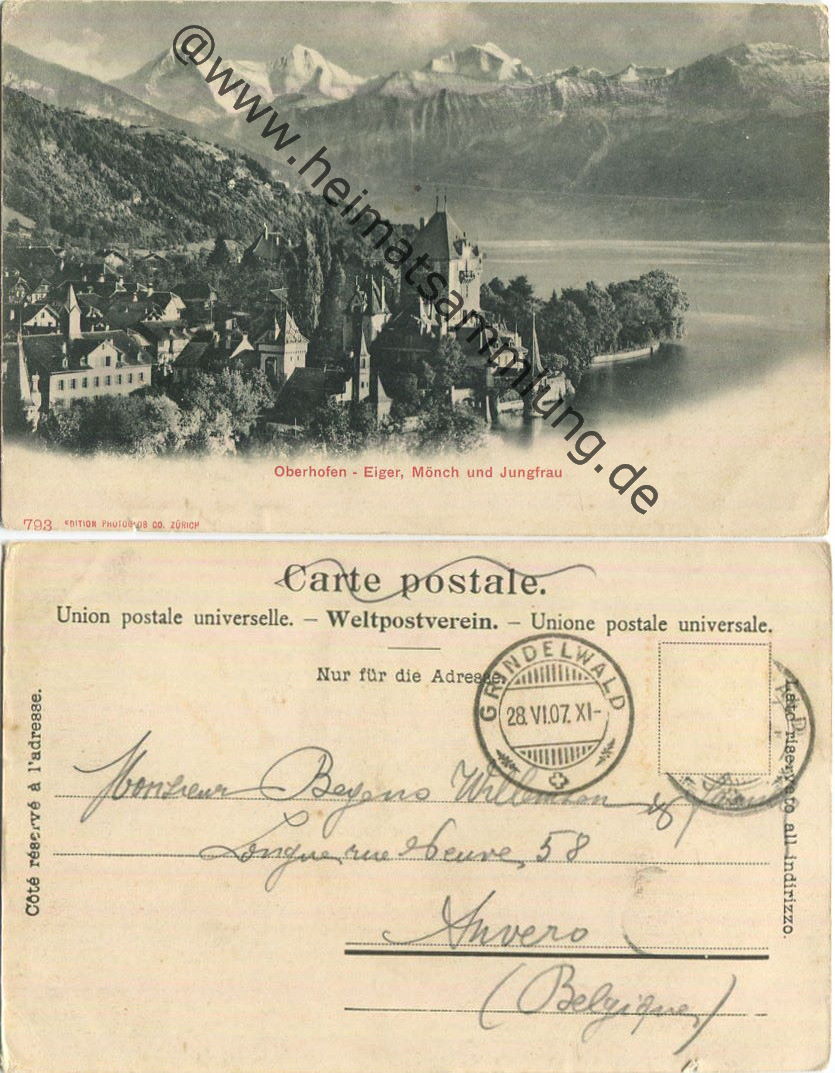 @www.heimatsammlung.de
Oberhofen - Eiger, Mönch und Jungfrau
793 EDITION PHOTOGLOB CO. ZÜRICH
Carte postale.
Union postale universelle. – Weltpostverein. – Unione postale universale.
Nur für die Adresse
GRINDELWALD
28.VI.07. XI-
Côté réservé à l'adresse.
Lato riservato all indirizzo.
Monsieur Beyens Willemsen
Longue rue Neuve, 58
Anvers
(Belgique)